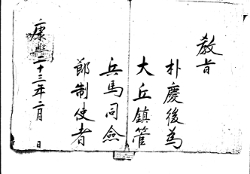 敎旨
朴慶後為
大丘鎮管
兵馬同僉
節制使者
康熙二十三年二月 日